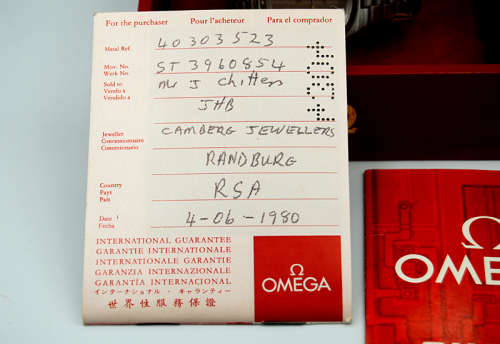 For the purchaser Pour l'acheteur Para el comprador
Metal Ref. 40303523
Mov. No. ST 3960854
Werk No.
Sold to Mr J Chitters
Vendu à
Vendido a JHB
Jeweller CAMBERG JEWELLERS
Concessionnaire
Concesionario RANDBURG
Country RSA
Pays
País
Date 4-06-1980
Fecha
INTERNATIONAL GUARANTEE
GARANTIE INTERNATIONALE
INTERNATIONALE GARANTIE
GARANZIA INTERNAZIONALE
GARANTÍA INTERNACIONAL
インターナショナル・ギャランティー
世界性服務保證
Ω
OMEGA
Ω
OMEG